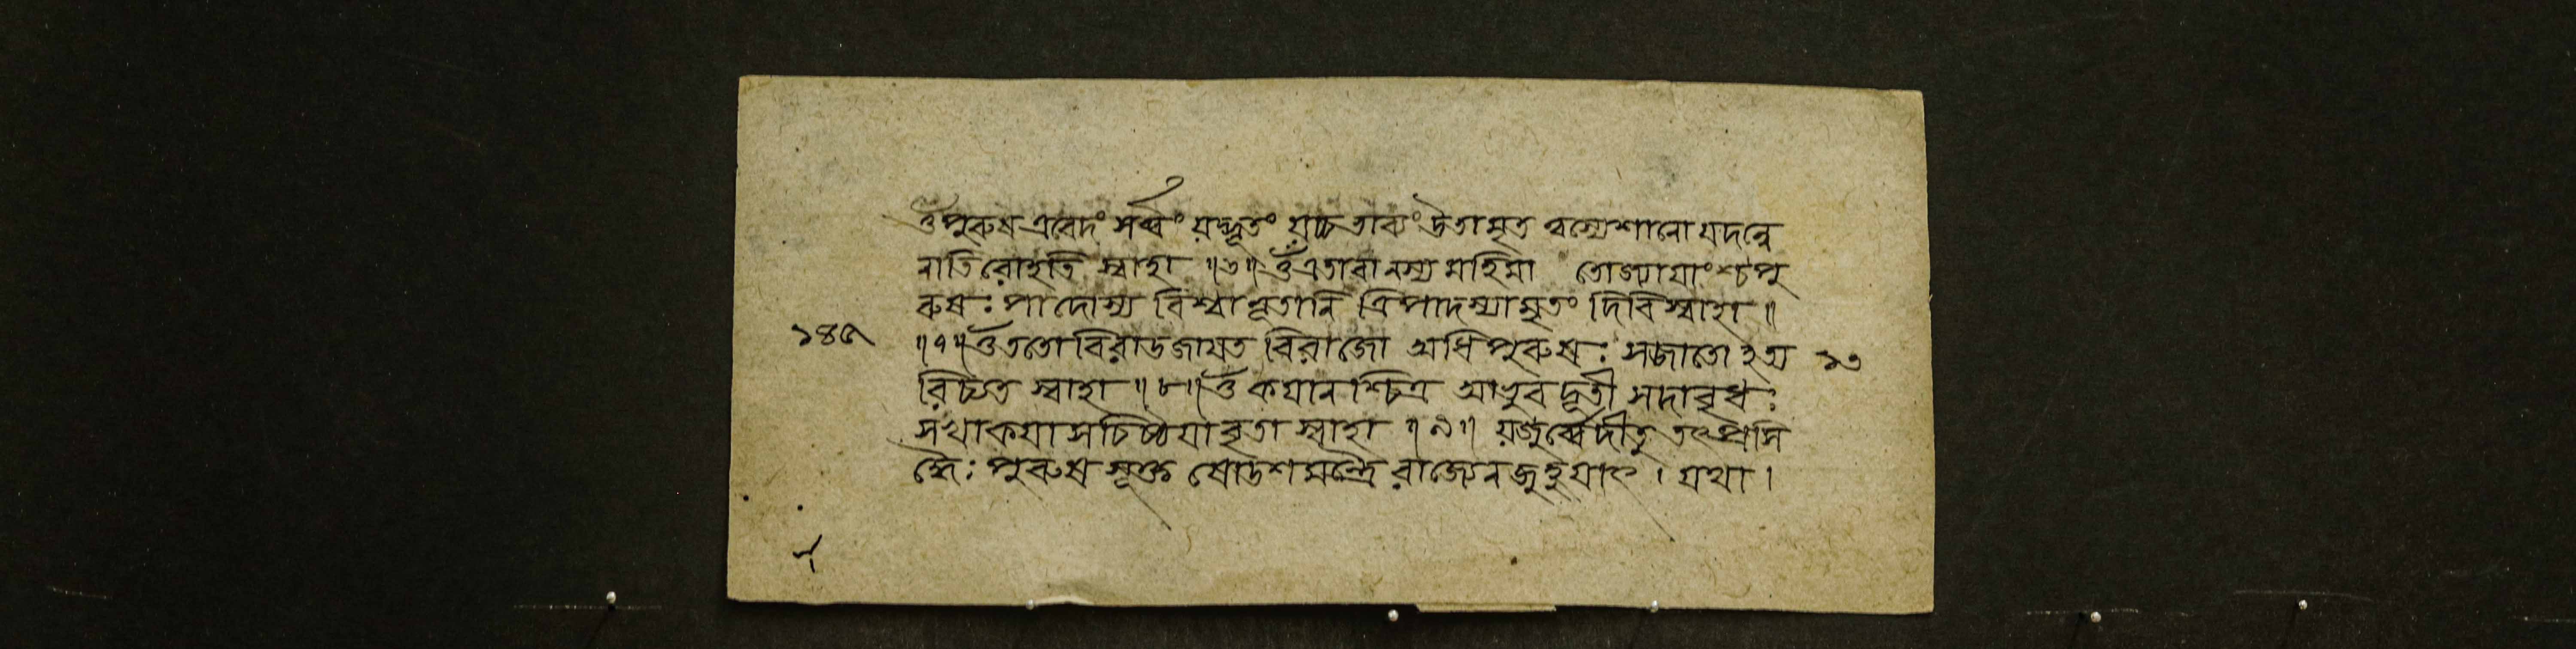 ওঁ পুরুষ এবেদং সর্ব্বং যদ্ভূতং যচ্চ ভাব্যং উতামৃত ত্বস্যেশানো যদন্নে
নাতিরোহতি স্বাহা ॥৬॥ ওঁ এতাবানস্য মহিমা তোজ্যায়াংশ্চ পু
রুষঃ পাদোস্য বিশ্বাভূতানি ত্রিপাদস্যামৃতং দিবি স্বাহা ॥
১৪৫ ॥৭॥ ওঁ ততো বিরাডজায়ত বিরাজো অধিপুরুষঃ সজাতো ২ত্য ১৩
রিচ্যত স্বাহা ॥৮॥ ওঁ কয়ানশ্চিত্র আভুবদূতী সদাবৃধঃ
সখা কয়া সচিষ্ঠয়াবৃতা স্বাহা ॥৯॥ যজুর্ব্বেদীতু তৎপ্রসি
দ্ধৈঃ পুরুষ সূক্ত ষোডশ মন্ত্রৈ রাজ্যেন জুহুয়াৎ । যথা ।